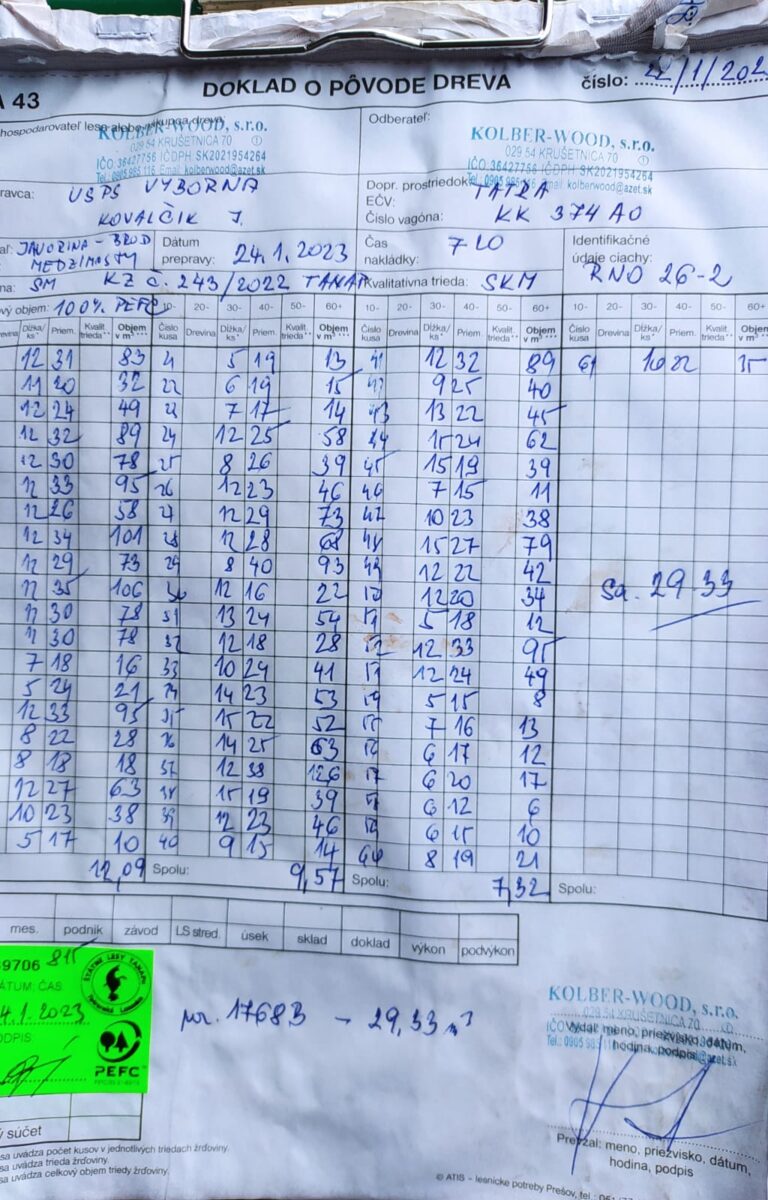 A 43
DOKLAD O PÔVODE DREVA
číslo:
hospodarovateľ lesa alebo výkupca dreva
KOLBER-WOOD, s.r.o.
029 54 KRUŠETNICA 70
IČO: 36427756 IČDPH: SK2021954264
Tel.: 0905 985 116 Email: kolberwood@azet.sk
Odberateľ:
KOLBER-WOOD, s.r.o.
029 54 KRUŠETNICA 70
IČO: 36427756 IČDPH: SK2021954264
kolberwood@azet.sk
ravca: USPS VYBORNA
KOVALČIK J.
Dopr. prostriedok: TATRA
EČV:
Číslo vagóna: KK 374 AO
JAVORINA - BROD
MEDZIMASTY
Dátum prepravy: 24.1.2023
Čas nakládky:
Identifikačné údaje ciachy: RNO 26-2
na: SM KZ č. 243/2022 TANAP
Kvalitatívna trieda: SKM
ový objem: 100% PEFC
10- 20- 30- 40- 50- 60+ 10- 20- 30- 40- 50- 60+ 10- 20- 30- 40- 50- 60+
Dĺžka/ks* Priem. Kvalit. trieda** Objem v m³*** Číslo kusa Drevina Dĺžka/ks* Priem. Kvalit. trieda** Objem v m³*** Číslo kusa Drevina Dĺžka/ks* Priem. Kvalit. trieda** Objem v m³*** Číslo kusa Drevina Dĺžka/ks* Priem. Kvalit. trieda** Objem v m³***
12 31 83 5 19 13 41 12 32 89 61 10 22 35
11 20 32 22 6 19 15 42 9 25 40
12 24 49 7 17 14 43 13 22 45
12 32 89 24 12 25 58 44 15 24 62
12 30 78 25 8 26 39 45 15 19 39
12 33 95 26 12 23 46 46 7 15 11
12 26 58 27 12 29 73 47 10 23 38
12 34 101 28 12 28 68 48 15 27 79
12 29 73 29 8 40 93 49 12 22 42
12 35 106 12 16 22 12 20 34
Sa. 29.33
12 30 78 31 13 24 54 51 5 18 12
12 30 78 32 12 18 28 12 33 95
7 18 16 33 10 24 41 12 24 49
5 24 21 14 23 53 5 15 8
12 33 95 35 15 22 52 7 16 13
8 22 28 36 14 25 63 6 17 12
8 18 18 37 12 38 126 6 20 17
12 27 63 38 15 19 39 6 12 6
10 23 38 39 12 23 46 6 15 10
5 17 10 40 9 15 14 8 19 21
12,09 Spolu: 9,57 Spolu: 7,32 Spolu:
mes. podnik závod LS stred. úsek sklad doklad výkon podvýkon
9706 815
ÁTUM: ČAS
4.1.2023
ODPIS:
ŠTÁTNE LESY TANAPU
PEFC
17683 - 29,33 m³
KOLBER-WOOD, s.r.o.
029 54 KRUŠETNICA 70
Vydal: meno, priezvisko, dátum,
hodina, podpis
ý súčet
Prevzal: meno, priezvisko, dátum,
hodina, podpis
sa uvádza počet kusov v jednotlivých triedach žrďoviny.
sa uvádza trieda žrďoviny.
sa uvádza celkový objem triedy žrďoviny.
© ATIS – lesnícke potreby Prešov, tel.: